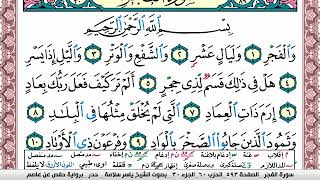 بِسْمِ اللَّهِ الرَّحْمَٰنِ الرَّحِيمِ
وَالْفَجْرِ ١ وَلَيَالٍ عَشْرٍ ٢ وَالشَّفْعِ وَالْوَتْرِ ٣ وَاللَّيْلِ إِذَا يَسْرِ
٤ هَلْ فِي ذَٰلِكَ قَسَمٌ لِّذِي حِجْرٍ ٥ أَلَمْ تَرَ كَيْفَ فَعَلَ رَبُّكَ بِعَادٍ
٦ إِرَمَ ذَاتِ الْعِمَادِ ٧ الَّتِي لَمْ يُخْلَقْ مِثْلُهَا فِي الْبِلَادِ ٨
وَثَمُودَ الَّذِينَ جَابُوا الصَّخْرَ بِالْوَادِ ٩ وَفِرْعَوْنَ ذِي الْأَوْتَادِ ١٠
سورة الفجر الصفحة ٥٩٣ الحزب ٦٠ الجزء ٣٠ بصوت الشيخ ياسر سلامة حدر برواية حفص عن عاصم